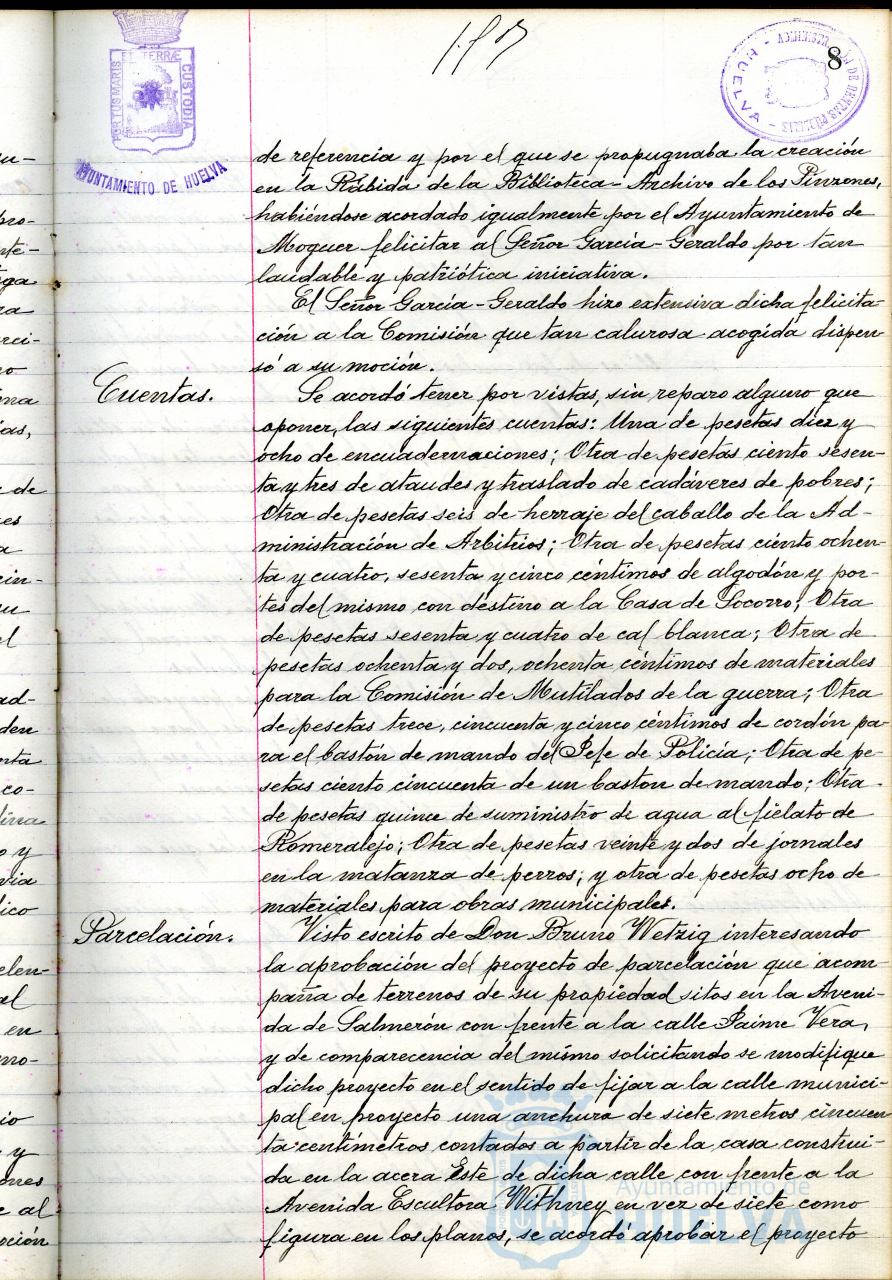 8
PORTUS MARIS ET TERRÆ CUSTODIA
AYUNTAMIENTO DE HUELVA
HUELVA
de referencia y por el que se propugnaba la creación
en la Rábida de la Biblioteca-Archivo de los Pinzones,
habiéndose acordado igualmente por el Ayuntamiento de
Moguer felicitar al Señor García-Geraldo por tan
laudable y patriótica iniciativa.
El Señor García-Geraldo hizo extensiva dicha felicita-
ción a la Comisión que tan calurosa acogida dispen
só a su moción.
Cuentas.
Se acordó tener por vistas, sin reparo alguno que
oponer, las siguientes cuentas: Una de pesetas diez y
ocho de encuadernaciones; Otra de pesetas ciento sesen-
ta y tres de ataudes y traslado de cadáveres de pobres;
Otra de pesetas seis de herraje del caballo de la Ad-
ministración de Arbitrios; Otra de pesetas ciento ochen-
ta y cuatro, sesenta y cinco céntimos de algodón y por-
tes del mismo con destino a la Casa de Socorro; Otra
de pesetas sesenta y cuatro de cal blanca; Otra de
pesetas ochenta y dos, ochenta céntimos de materiales
para la Comisión de Mutilados de la guerra; Otra
de pesetas trece, cincuenta y cinco céntimos de cordón pa-
ra el bastón de mando del Jefe de Policía; Otra de pe-
setas ciento cincuenta de un baston de mando; Otra
de pesetas quince de suministro de agua al fielato de
Romeralejo; Otra de pesetas veinte y dos de jornales
en la matanza de perros; y otra de pesetas ocho de
materiales para obras municipales.
Parcelación.
Visto escrito de Don Bruno Wetzig interesando
la aprobación del proyecto de parcelación que acom
paña de terrenos de su propiedad sitos en la Aveni-
da de Salmerón con frente a la calle Jaime Vera,
y de comparecencia del mismo solicitando se modifique
dicho proyecto en el sentido de fijar a la calle munici-
pal en proyecto una anchura de siete metros cincuen
ta centímetros contados a partir de la casa construi-
da en la acera Este de dicha calle con frente a la
Avenida Escultora Withney en vez de siete como
figura en los planos, se acordó aprobar el proyecto
Ayuntamiento de
HUELVA